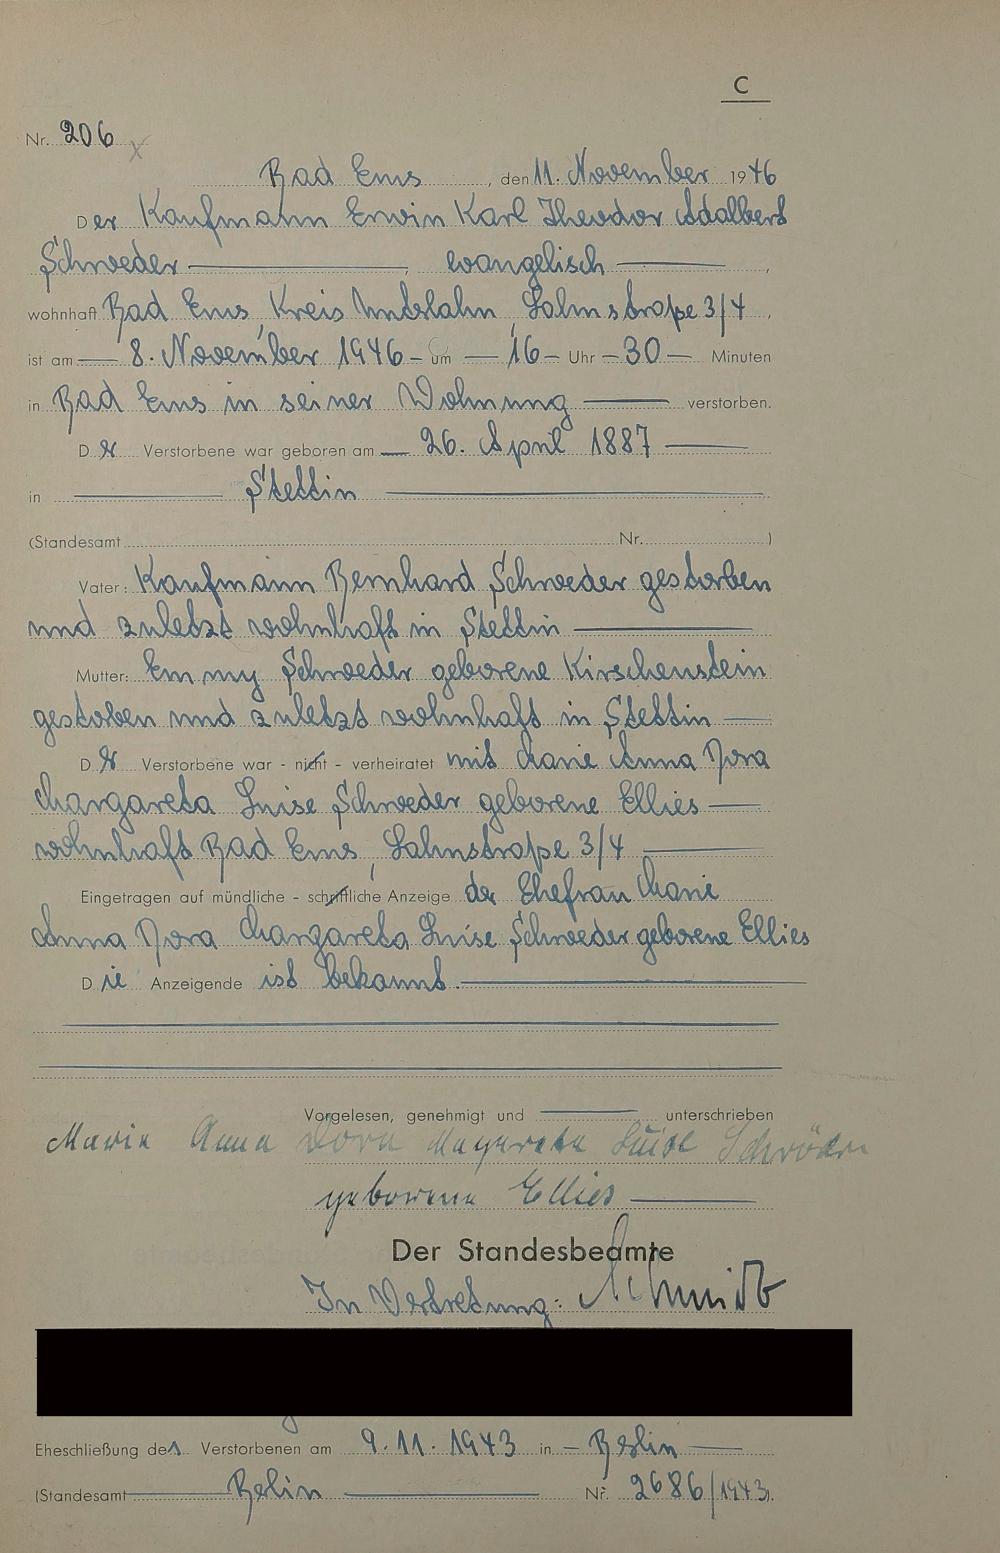 C
Nr. 206
Bad Ems, den 11. November 1946
Der Kaufmann Erwin Karl Theodor Adalbert
Schroeder, evangelisch,
wohnhaft Bad Ems, Kreis Unterlahn, Lahnstraße 3/4,
ist am 8. November 1946 um 16 Uhr 30 Minuten
in Bad Ems in seiner Wohnung verstorben.
Der Verstorbene war geboren am 26. April 1887
in Stettin
(Standesamt Nr. )
Vater: Kaufmann Bernhard Schroeder gestorben
und zuletzt wohnhaft in Stettin
Mutter: Emmy Schroeder geborene Kirschenstein
gestorben und zuletzt wohnhaft in Stettin
Der Verstorbene war - nicht - verheiratet mit Marie Anna Dora
Margareta Luise Schroeder geborene Ellies
wohnhaft Bad Ems, Lahnstraße 3/4
Eingetragen auf mündliche - schriftliche Anzeige der Ehefrau Marie
Anna Dora Margareta Luise Schroeder geborene Ellies
Die Anzeigende ist bekannt.
Vorgelesen, genehmigt und unterschrieben
Marie Anna Dora Margareta Luise Schröder
geborene Ellies
Der Standesbeamte
In Vertretung: Schmidt
Eheschließung des Verstorbenen am 9.11.1943 in Berlin
(Standesamt Berlin Nr. 2686/1943).